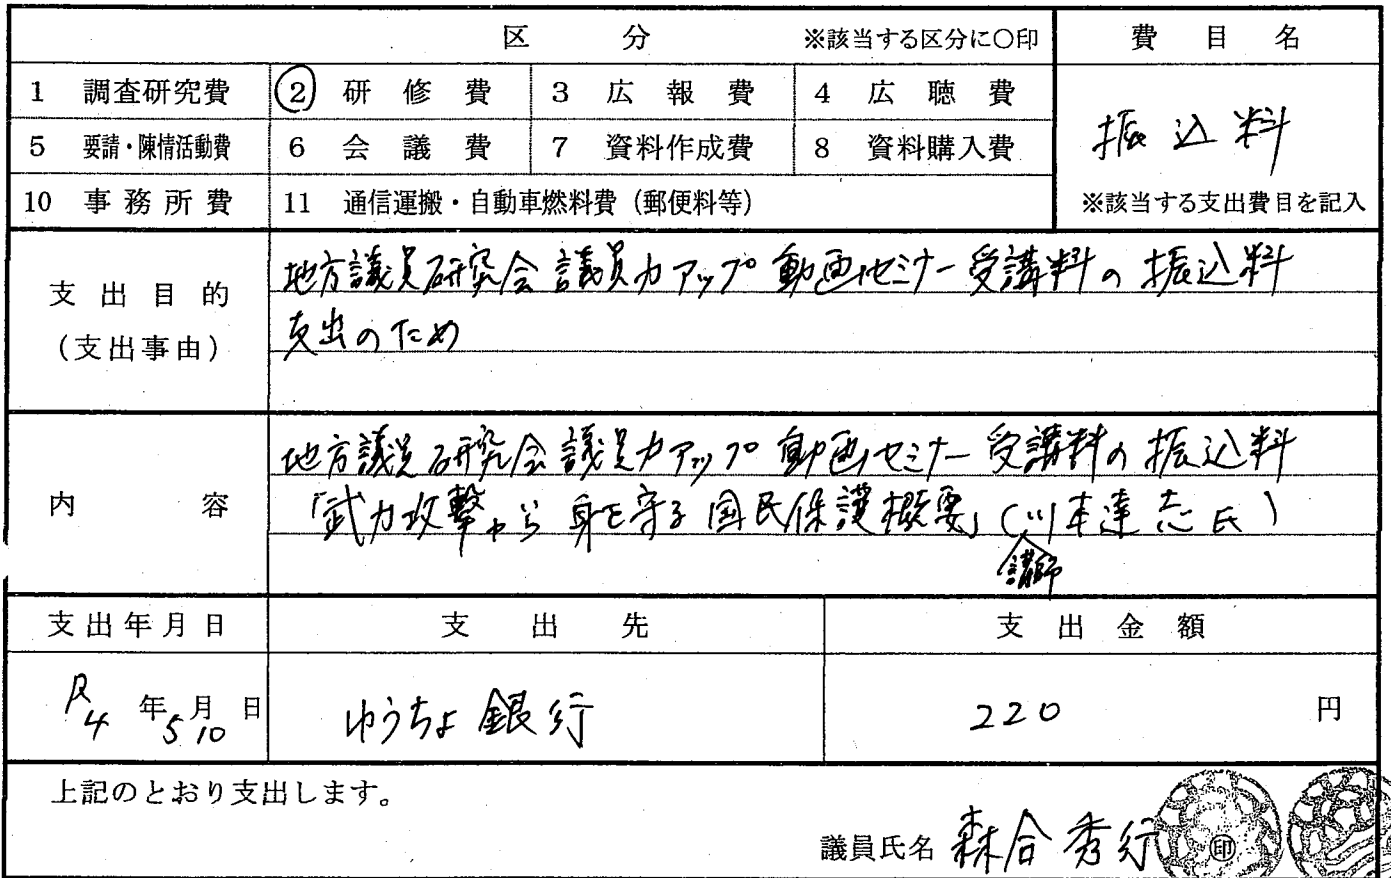 区 分 ※該当する区分に○印 費 目 名
1 調査研究費 ② 研 修 費 3 広 報 費 4 広 聴 費
振込料
5 要請・陳情活動費 6 会 議 費 7 資料作成費 8 資料購入費
10 事務所費 11 通信運搬・自動車燃料費(郵便料等) ※該当する支出費目を記入
支出目的
(支出事由)
地方議員研究会 議員力アップ 動画セミナー受講料の振込料
支出のため
内 容
地方議員研究会 議員力アップ 動画セミナー受講料の振込料
「武力攻撃から身を守る国民保護概要」(川本達志氏)
講師
支出年月日 支 出 先 支 出 金 額
R4年5月10日 ゆうちょ銀行 220 円
上記のとおり支出します。
議員氏名 森合秀行 ㊞